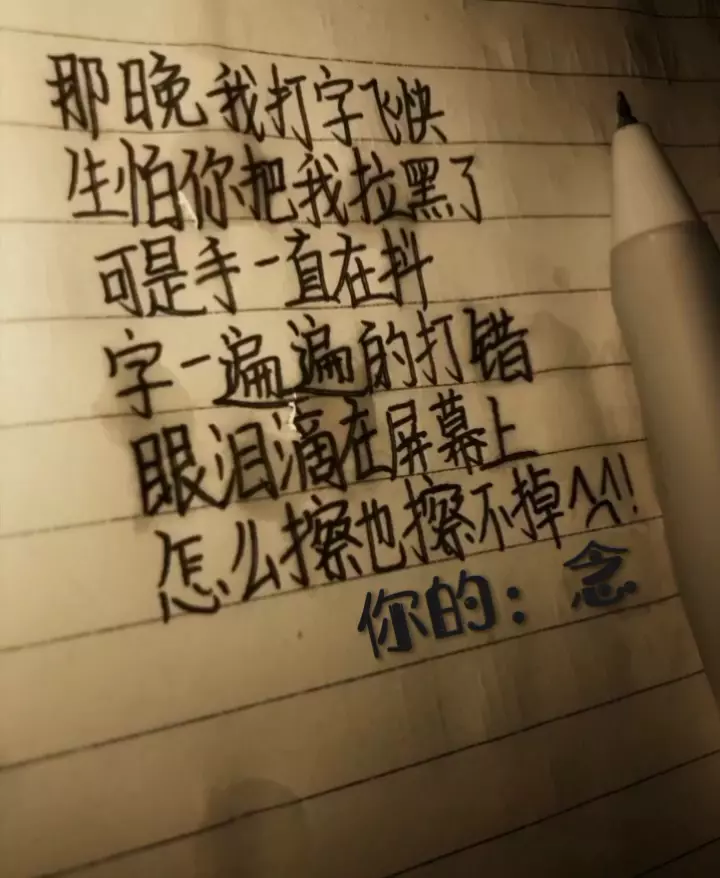 那晚我打字飞快
生怕你把我拉黑了
可是手一直在抖
字一遍遍的打错
眼泪滴在屏幕上
怎么擦也擦不掉^^!
你的：念